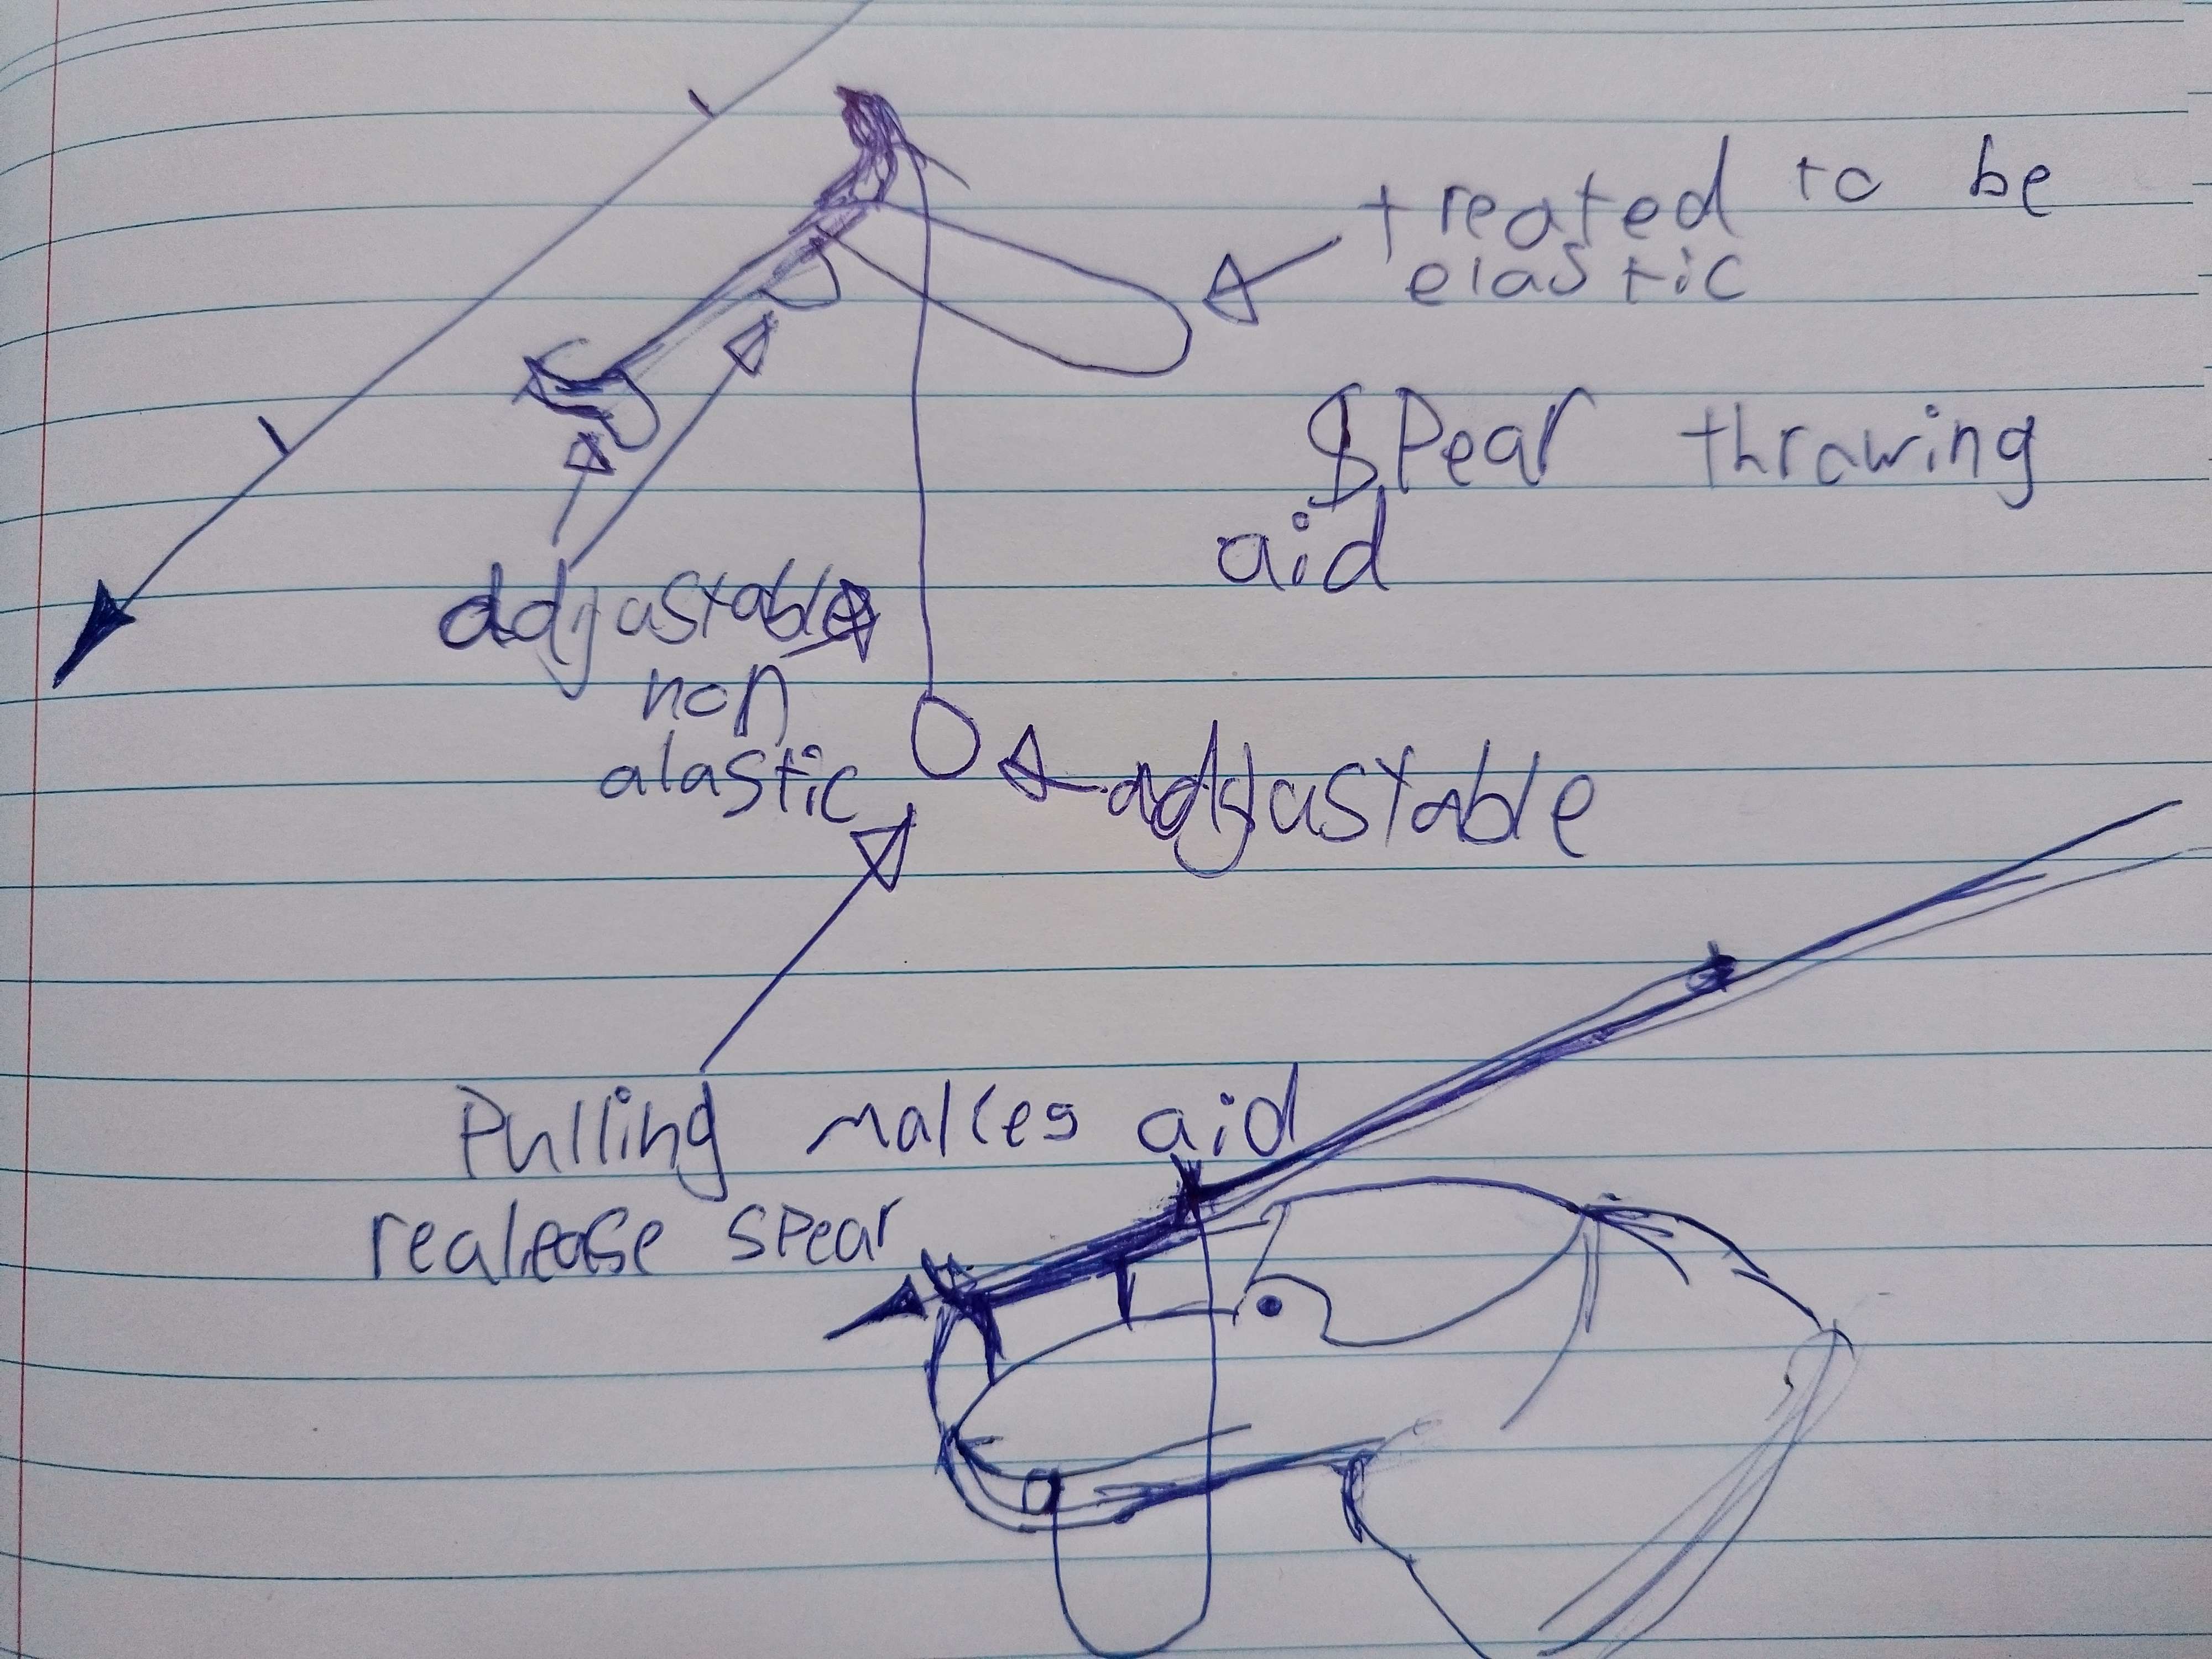 treated to be
elastic
Spear thrawing
aid
adjustable
non
alastic
adjustable
Pulling makes aid
realease spear